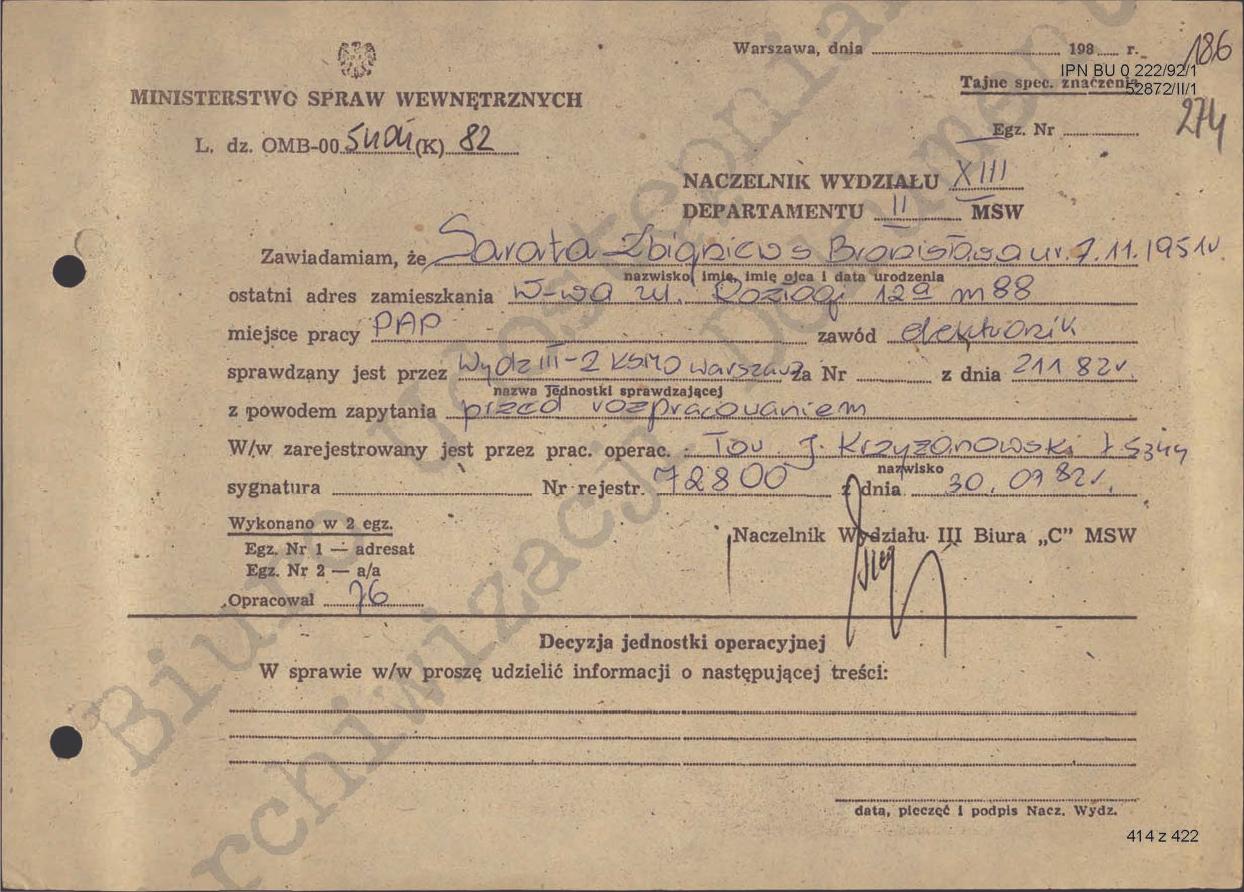 Warszawa, dnia 198 r.
186
IPN BU 0 222/92/1
Tajne spec. znaczenia
52872/II/1
MINISTERSTWO SPRAW WEWNĘTRZNYCH
274
Egz. Nr
L. dz. OMB-00 (K) 82
NACZELNIK WYDZIAŁU XIII
DEPARTAMENTU II MSW
Zawiadamiam, że Sarata Zbigniew s Bronisława ur. 7.11.1951r.
nazwisko, imię, imię ojca i data urodzenia
ostatni adres zamieszkania W-wa ul. 12a m 88
miejsce pracy PAP zawód elektronik
sprawdzany jest przez Wydz III-2 KSMO Warszawa za Nr z dnia 21 1 82r.
nazwa jednostki sprawdzającej
z powodem zapytania przed rozpracowaniem
W/w zarejestrowany jest przez prac. operac. Tow. J. Krzyżanowski
nazwisko
sygnatura Nr rejestr. 72800 z dnia 30. 82r.
Wykonano w 2 egz.
Egz. Nr 1 — adresat
Egz. Nr 2 — a/a
Opracował 76
Naczelnik Wydziału III Biura „C" MSW
Decyzja jednostki operacyjnej
W sprawie w/w proszę udzielić informacji o następującej treści:
data, pieczęć i podpis Nacz. Wydz.
414 z 422
Biuro Udostępniania
Archiwizacji Dokumentów